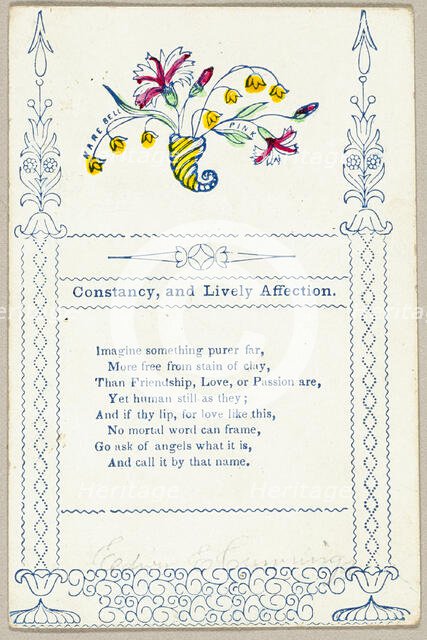 HARE BELL
PINK
Constancy, and Lively Affection.
Imagine something purer far,
More free from stain of clay,
Than Friendship, Love, or Passion are,
Yet human still as they;
And if thy lip, for love like this,
No mortal word can frame,
Go ask of angels what it is,
And call it by that name.
Heritage
Heritage
Edwin E Cumming